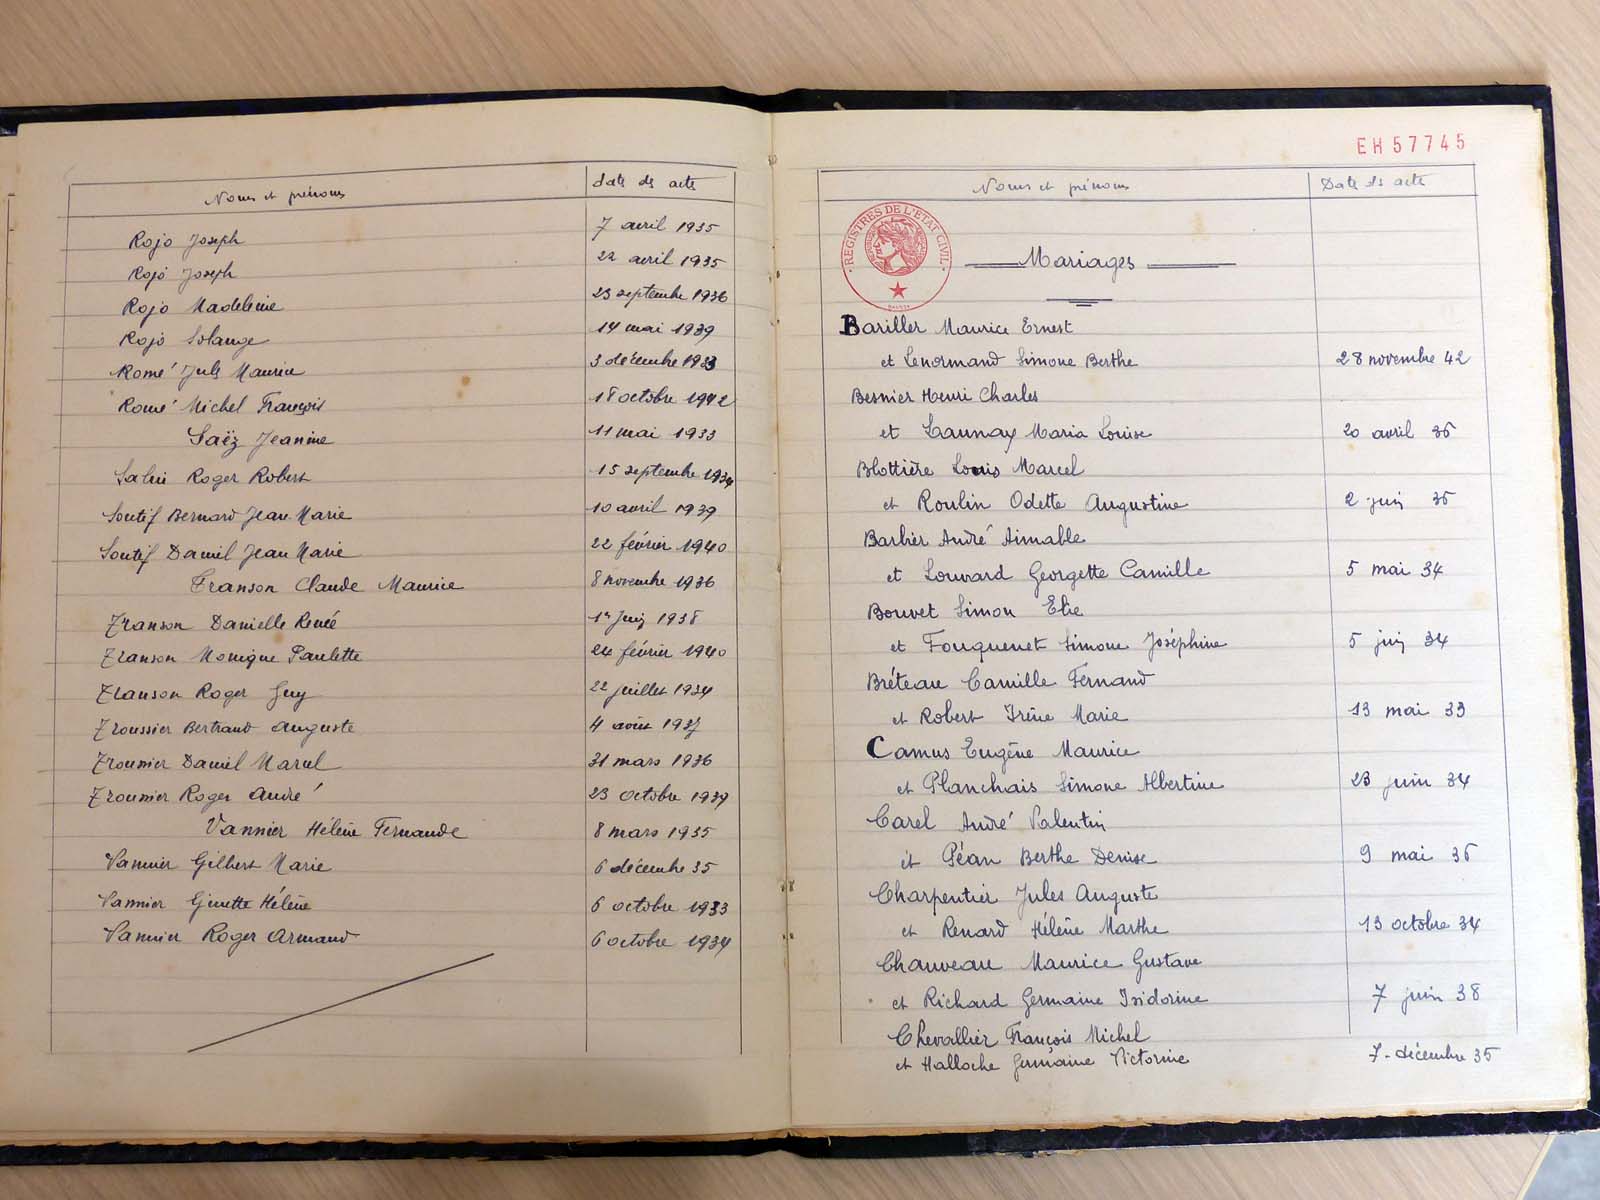 Noms et prénoms date des actes
Rojo Joseph 7 avril 1935
Rojo Joseph 22 avril 1935
Rojo Madeleine 23 septembre 1936
Rojo Solange 14 mai 1939
Romé Jules Maurice 3 décembre 1933
Romé Michel François 18 octobre 1942
Saëz Jeanine 11 mai 1933
Salin Roger Robert 15 septembre 1934
Soutif Bernard Jean Marie 10 avril 1939
Soutif Daniel Jean Marie 22 février 1940
Transon Claude Maurice 8 novembre 1936
Transon Danielle Renée 1er juin 1938
Transon Monique Paulette 24 février 1940
Transon Roger Guy 22 juillet 1934
Troussier Bertrand Auguste 4 août 1937
Troussier Daniel Marcel 31 mars 1936
Troussier Roger André 23 octobre 1939
Vannier Hélène Fernande 8 mars 1935
Vannier Gilbert Marie 6 décembre 35
Vannier Ginette Hélène 6 octobre 1933
Vannier Roger Armand 6 octobre 1934
EH57745
Noms et prénoms Date des actes
REGISTRES DE L'ETAT CIVIL
Mariages
Bariller Maurice Ernest
et Lenormand Simone Berthe 28 novembre 42
Besnier Henri Charles
et Launay Maria Louise 20 avril 36
Blottière Louis Marcel
et Roulin Odette Augustine 2 juin 36
Barbier André Aimable
et Louvard Georgette Camille 5 mai 34
Bouvet Simon Elie
et Fouquenet Simone Joséphine 5 juin 34
Bréteau Camille Fernand
et Robert Irène Marie 13 mai 33
Camus Eugène Maurice
et Planchais Simone Albertine 23 juin 34
Carel André Valentin
et Péan Berthe Denise 9 mai 36
Charpentier Jules Auguste
et Renard Hélène Marthe 13 octobre 34
Chauveau Maurice Gustave
et Richard Germaine Isidorine 7 juin 38
Chevallier François Michel
et Halloche Germaine Victorine 7 - décembre 35